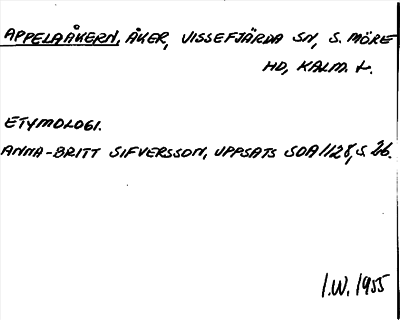 APPELAÅKERN, ÅKER, VISSEFJÄRDA SN, S. MÖRE
HD, KALM. L.
ETYMOLOGI.
ANNA-BRITT SIFVERSSON, UPPSATS SOA 1128, S. 26.
I.W. 1955